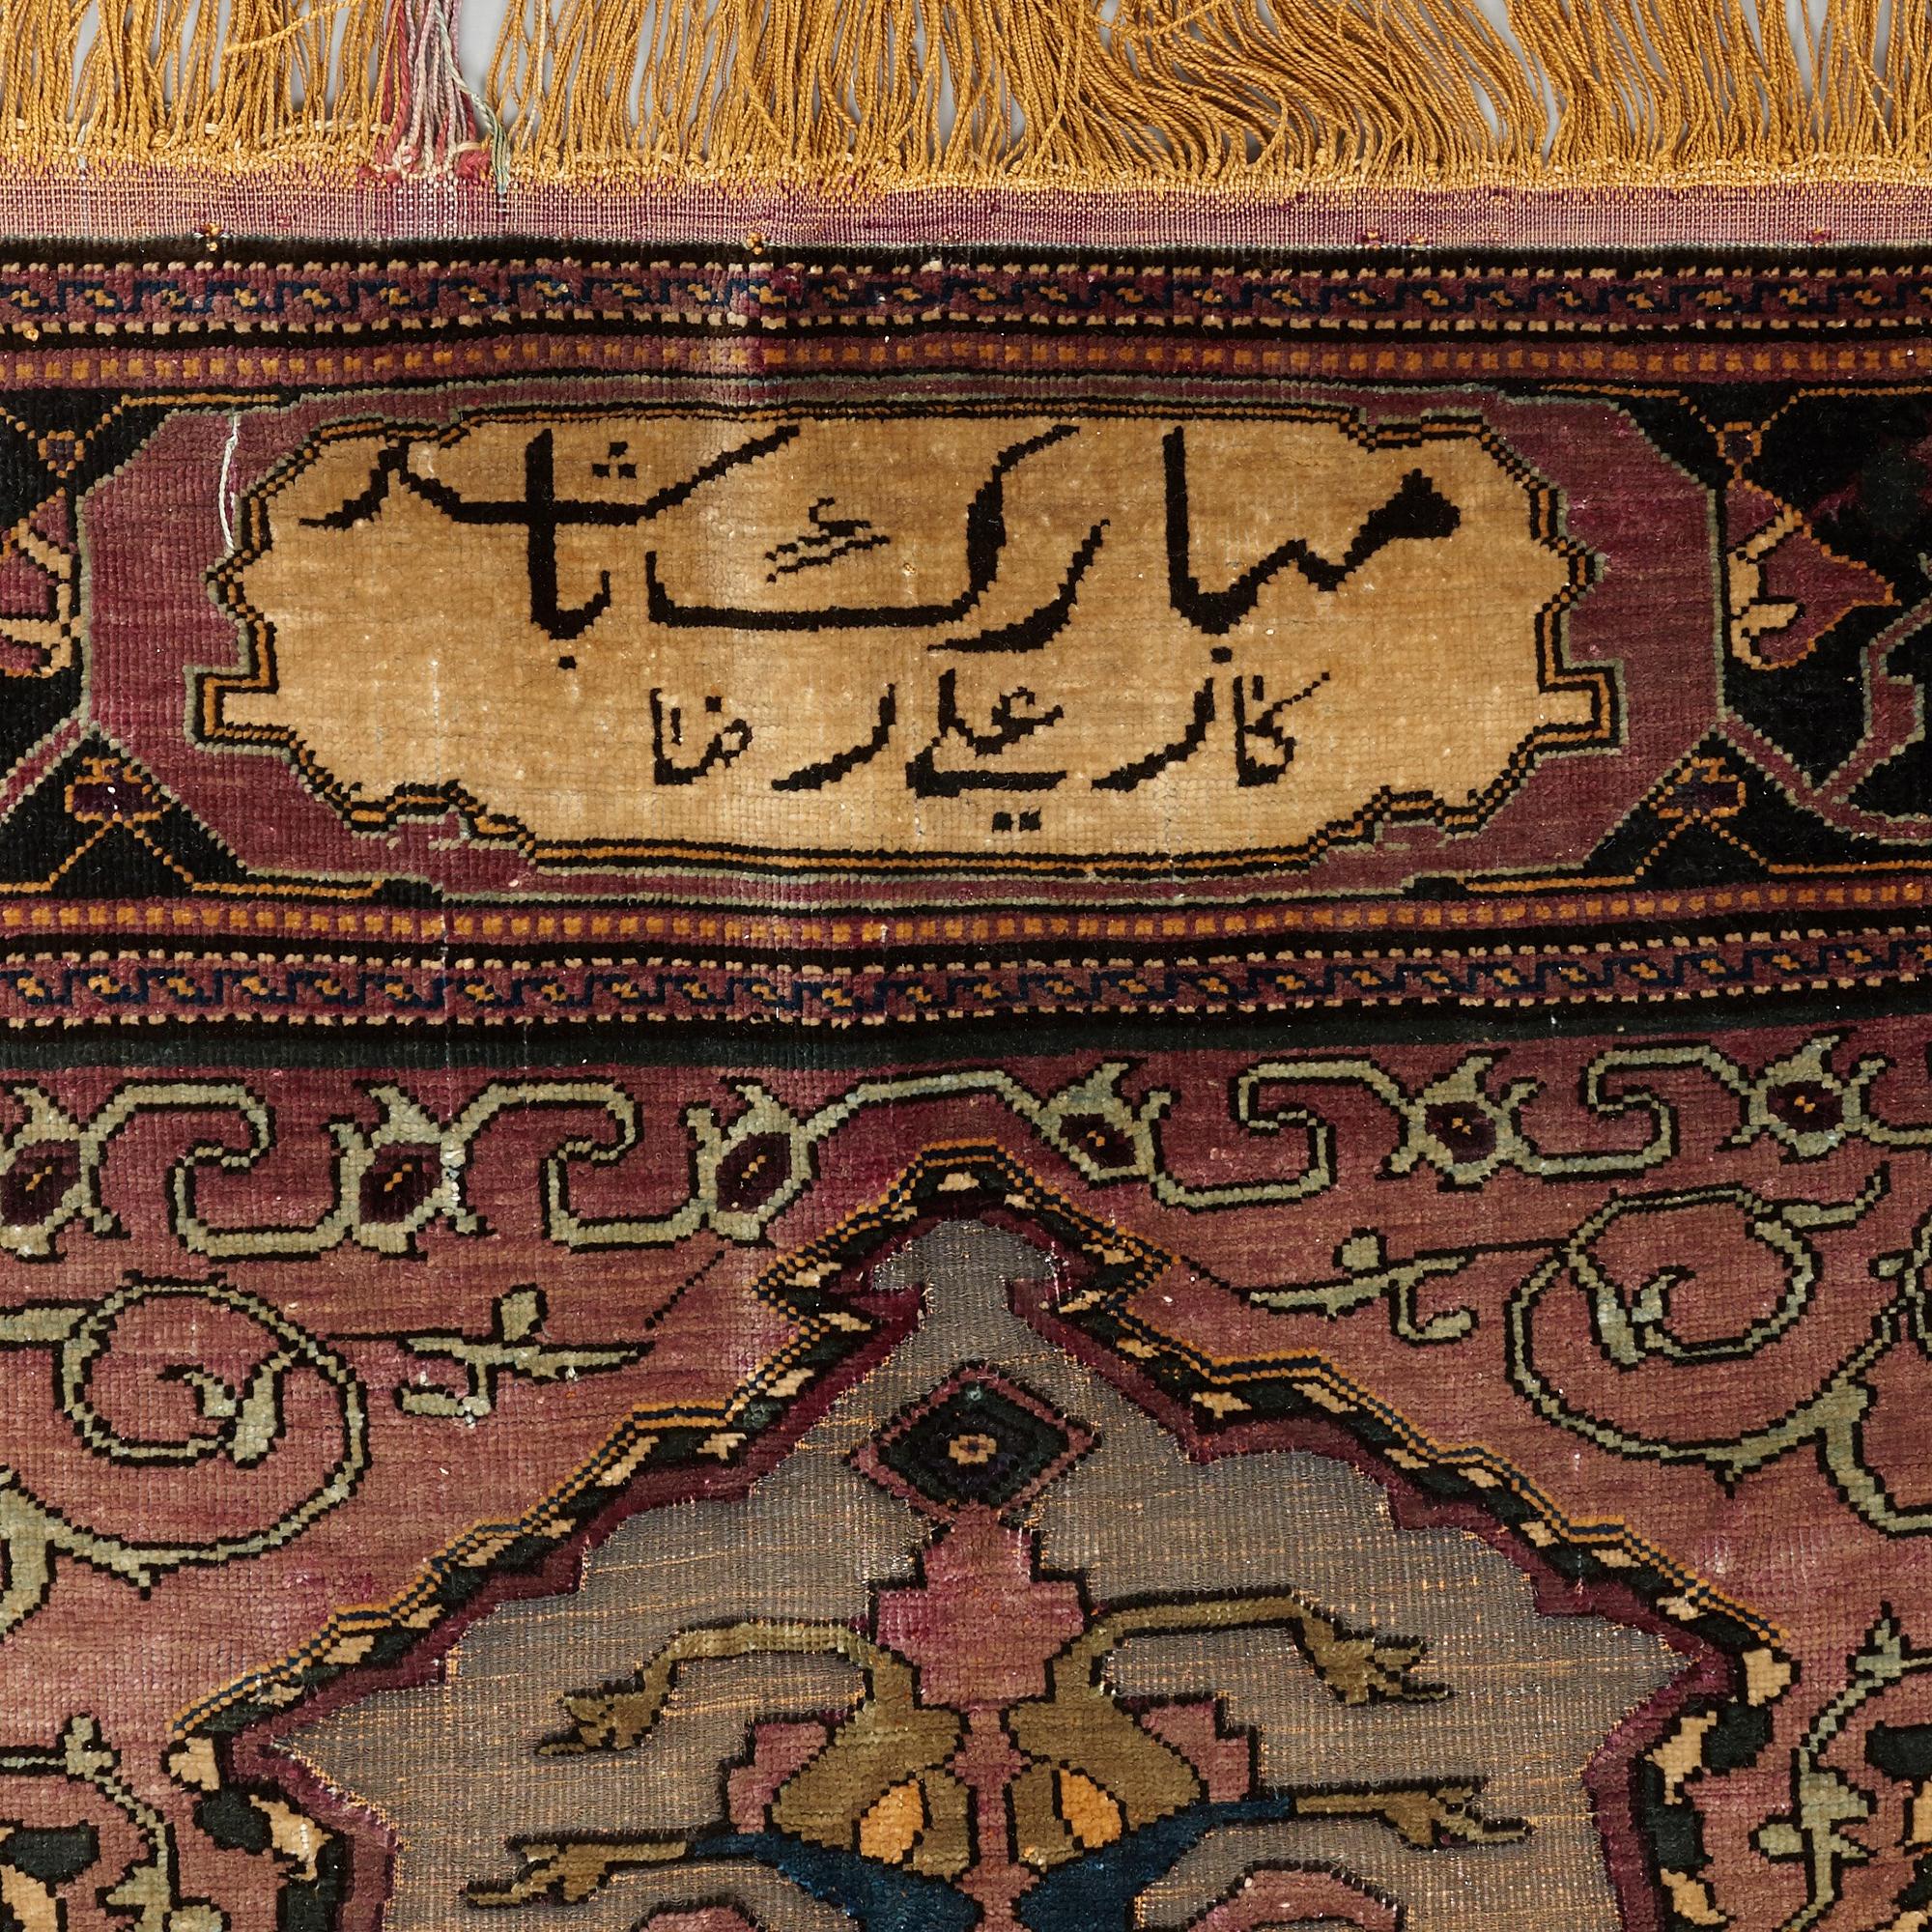 مبارک باشد
کار علي رضا